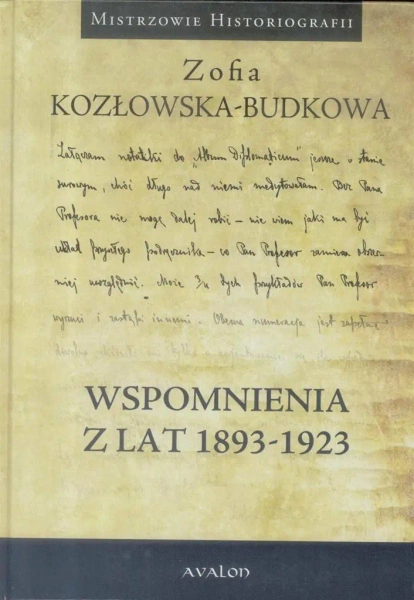 MISTRZOWIE HISTORIOGRAFII
Zofia
KOZŁOWSKA-BUDKOWA
Załączam notatki do „Album Diplomaticum" jeszcze w stanie
surowym, choć długo nad niemi medytowałam. Bez Pana
Profesora nie mogę dalej robić – nie wiem jaki ma być
układ przyszłego podręcznika – co Pan Profesor zamierza obszer-
niej uwzględnić. Może z tych przykładów Pan Profesor
wyrzuci i zastąpi innemi. Obecna numeracja jest zupełnie
WSPOMNIENIA
Z LAT 1893-1923
AVALON